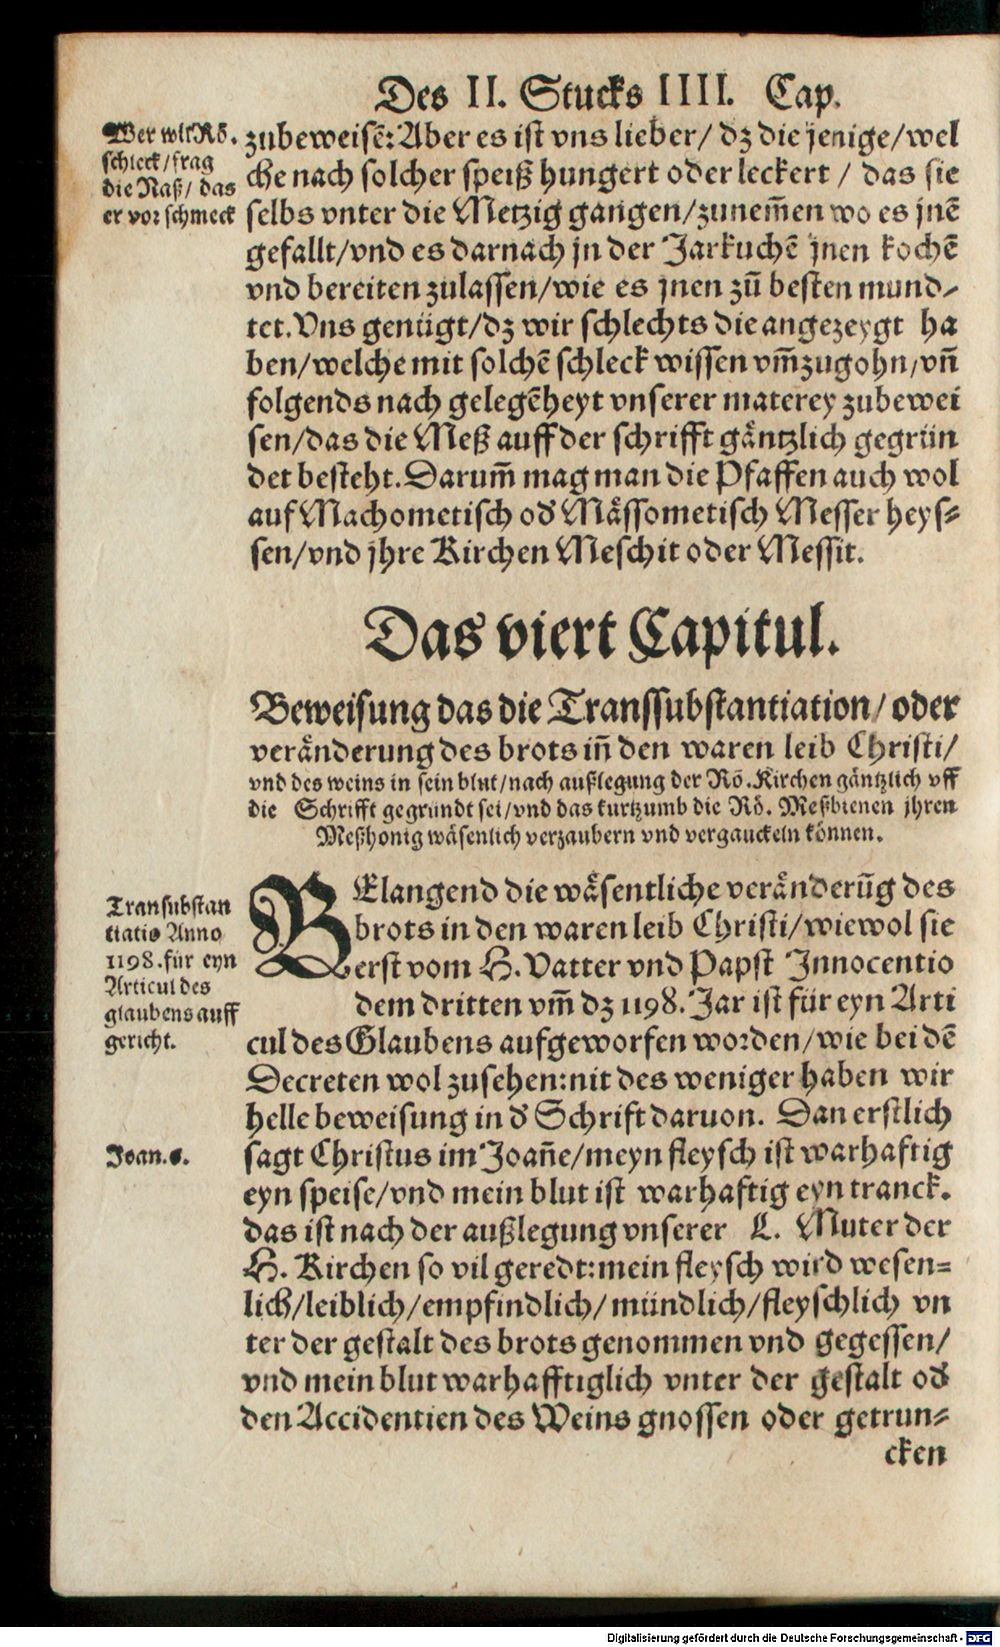 Des II. Stucks IIII. Cap.
Wer wil Rö.
schleck/frag
die Naß/ das
er vor schmeck
zubeweisẽ: Aber es ist vns lieber/ dz die jenige/wel
che nach solcher speiß hungert oder leckert / das sie
selbs vnter die Metzig gangen/zunem̃en wo es jnẽ
gefallt/vnd es darnach jn der Jarkuchẽ jnen kochẽ
vnd bereiten zulassen/wie es jnen zũ besten mund-
tet. Vns genügt/dz wir schlechts die angezeygt ha
ben/welche mit solchẽ schleck wissen vm̃zugohn/vñ
folgends nach gelegẽheyt vnserer materey zubewei
sen/das die Meß auff der schrifft gäntzlich gegrün
det besteht. Darum̃ mag man die Pfaffen auch wol
auf Machometisch od̕ Mässometisch Messer heys-
sen/vnd jhre Kirchen Meschit oder Messit.
Das viert Capitul.
Beweisung das die Transsubstantiation/ oder
veränderung des brots iñ den waren leib Christi/
vnd des weins in sein blut/nach außlegung der Rö. Kirchen gäntzlich vff
die Schrifft gegründt sei/vnd das kurtzumb die Rö. Meßbienen jhren
Meßhonig wäsenlich verzaubern vnd vergauckeln können.
Transubstan
tiatio Anno
1198. für eyn
Articul des
glaubens auff
gericht.
BElangend die wäsentliche veränderũg des
brots in den waren leib Christi/wiewol sie
erst vom H. Vatter vnd Papst Innocentio
dem dritten vm̃ dz 1198. Jar ist für eyn Arti
cul des Glaubens aufgeworfen worden/wie bei dẽ
Decreten wol zusehen: nit des weniger haben wir
helle beweisung in d̕ Schrift daruon. Dan erstlich
Joan. 6.
sagt Christus im Joañe/meyn fleysch ist warhaftig
eyn speise/vnd mein blut ist warhaftig eyn tranck.
das ist nach der außlegung vnserer L. Muter der
H. Kirchen so vil geredt: mein fleysch wird wesen-
lich/leiblich/empfindlich/mündlich/fleyschlich vn
ter der gestalt des brots genommen vnd gegessen/
vnd mein blut warhafftiglich vnter der gestalt od̕
den Accidentien des Weins gnossen oder getrun-
cken
Digitalisierung gefördert durch die Deutsche Forschungsgemeinschaft - DFG